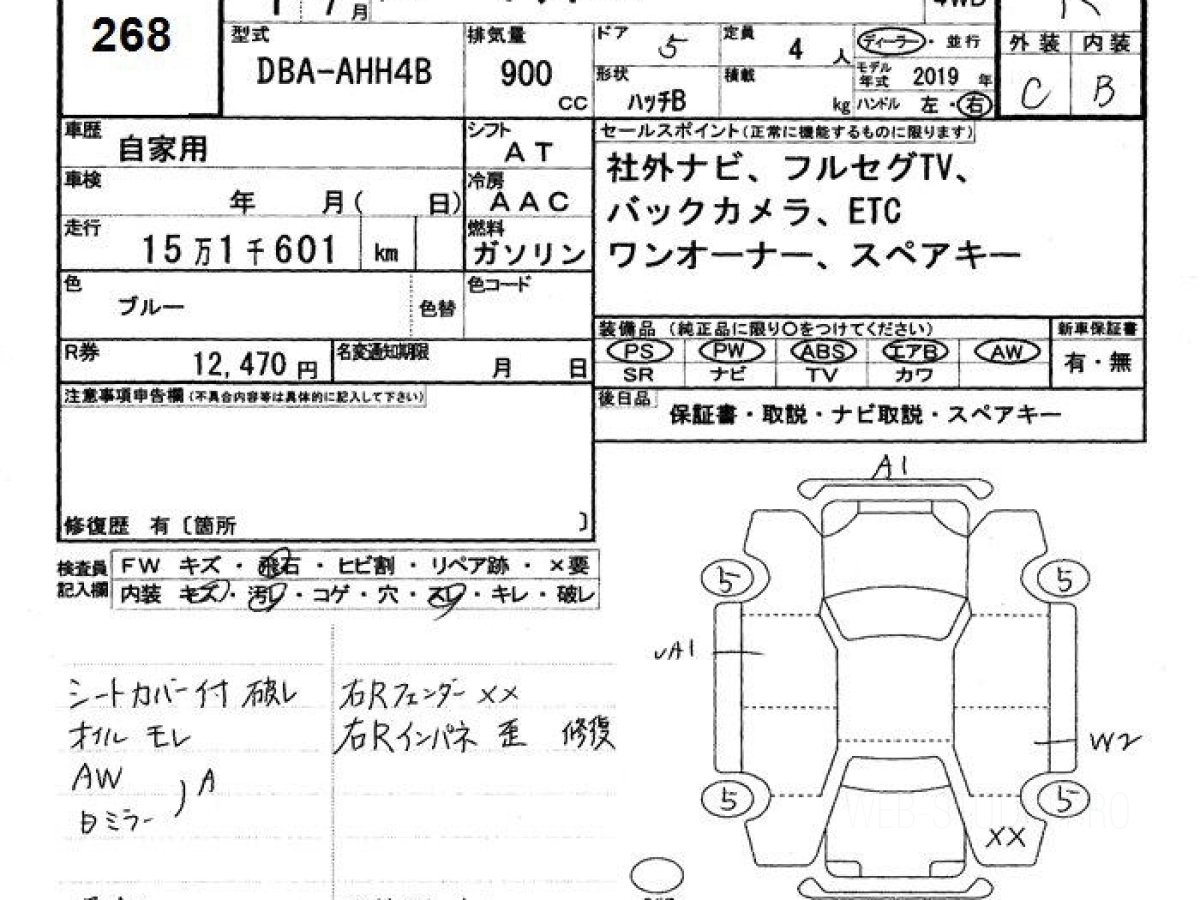 268
7月
4WD
型式
DBA-AHH4B
排気量
900
CC
ドア
5
定員
4
人
ディーラー・並行
形状
ハッチB
積載
kg
モデル年式
2019
年
ハンドル 左・右
外装
内装
C
B
車歴
自家用
シフト
AT
車検
年 月( 日)
冷房
AAC
走行
15万1千601
km
燃料
ガソリン
色
ブルー
色替
色コード
R券
12,470円
名変通知期限
月 日
セールスポイント(正常に機能するものに限ります)
社外ナビ、フルセグTV、
バックカメラ、ETC
ワンオーナー、スペアキー
装備品 (純正品に限り○をつけてください)
新車保証書
PS PW ABS エアB AW
有・無
SR ナビ TV カワ
後日品
保証書・取説・ナビ取説・スペアキー
注意事項申告欄(不具合内容等は具体的に記入して下さい)
修復歴 有〔箇所 〕
検査員
記入欄
FW キズ・飛石・ヒビ割・リペア跡・×要
内装 キズ・汚レ・コゲ・穴・スレ・キレ・破レ
シートカバー付 破レ
オイルモレ
AW
日ミラー
) A
右Rフェンダー XX
右Rインパネ 歪 修復
A1
5
5
A1
W2
5
5
XX